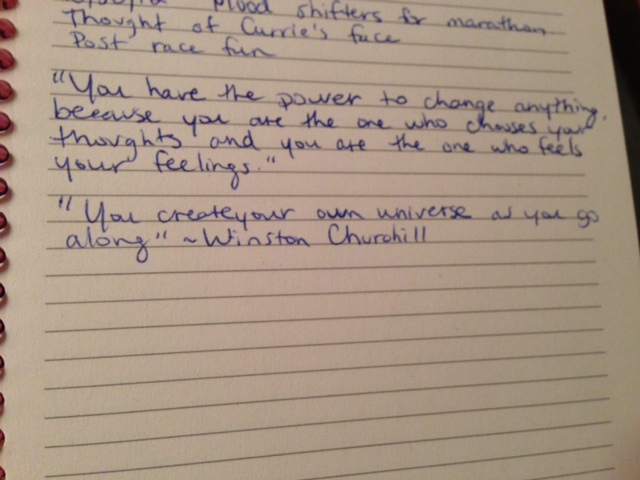 Mood shifters for marathon
Thought of Currie's face
Post race fun
"You have the power to change anything,
because you are the one who chooses your
thoughts and you are the one who feels
your feelings."
"You create your own universe as you go
along" ~ Winston Churchill